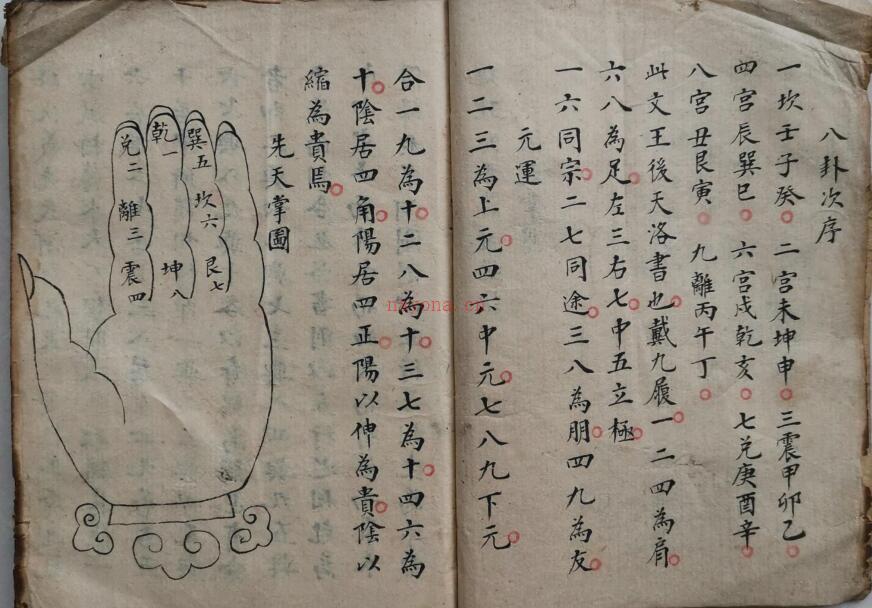 八卦次序
一坎壬子癸 二宮未坤申 三震甲卯乙
四宮辰巽巳 六宮戌乾亥 七兌庚酉辛
八宮丑艮寅 九離丙午丁
此文王後天洛書也戴九履一二四為肩
六八為足左三右七中五立極
一六同宗二七同途三八為朋四九為友
元運
一二三為上元四六中元七八九下元
合一九為十二八為十三七為十四六為
十陰居四角陽居四正陽以伸為貴陰以
縮為貴焉
先天掌圖
巽五 坎六 艮七
乾一 坤八
兌二 離三 震四